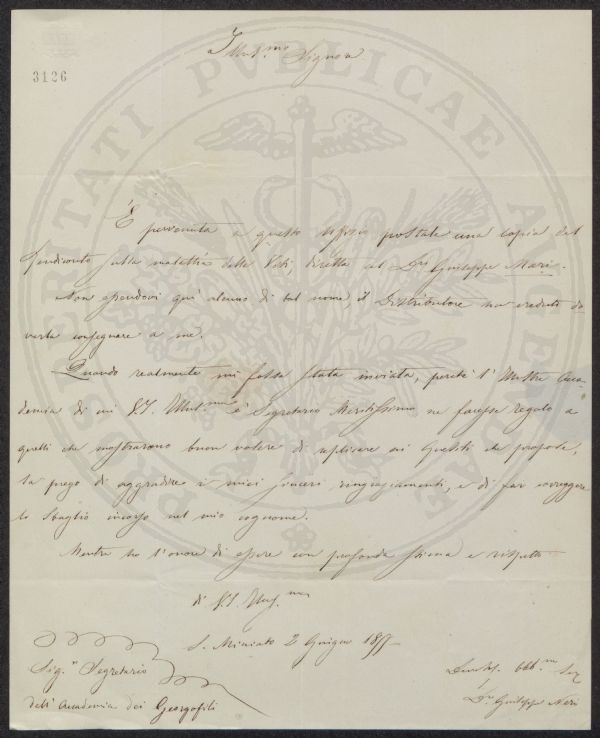 3126
Illus.mo Signore
PROSPERITATI PVBLICAE AVGENDAE
È pervenuta a questo Uffizio postale una copia del
Rendiconto sulla malattia delle Viti, diretta al D.r Giuseppe Mari.
Non essendovi qui alcuno di tal nome, il Distributore ha creduto do-
verla consegnare a me.
Quando realmente mi fosse stata inviata, perchè l'Illustre Acca-
demia di cui V.S. Illus.ma è Segretario Meritissimo ne facesse regalo a
quelli che mostrarono buon volere di replicare ai Quesiti che propose,
la prego di aggradire i miei sinceri ringraziamenti, e di far correggere
lo sbaglio incorso nel mio cognome.
Mentre ho l'onore di essere con profonda stima e rispetto
di V.S. Illus.ma
S. Miniato 2 Giugno
Sig.r Segretario
dell'Accademia dei Georgofili
Devotis. obb.mo Ser
D.r Giuseppe Neri